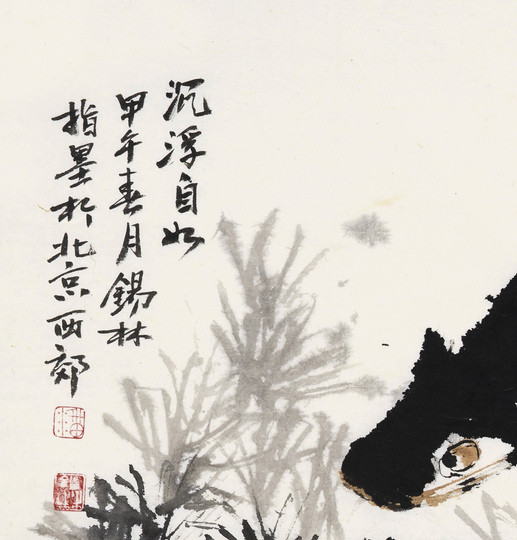 沉浮自如
甲午春月錫林
指墨於北京西郊